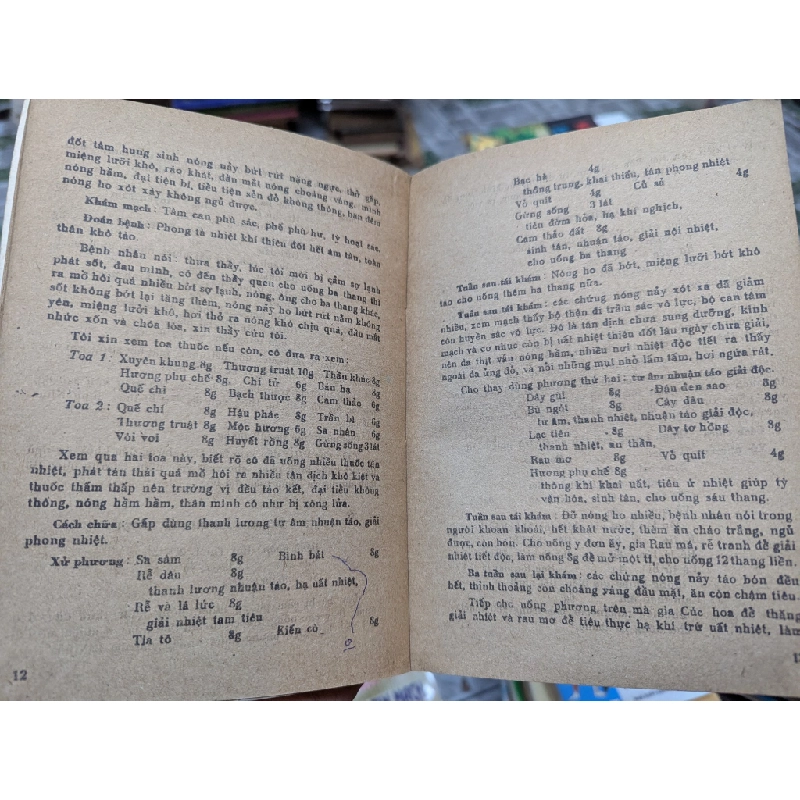 đốt tâm hung sinh nóng nảy bứt rứt nặng ngực, thở gấp,
miệng lưỡi khô, ráo khát, đầu mắt nóng choáng váng, mình
nóng hầm, đại tiện bí, tiểu tiện sẻn đỏ không thông, ban đêm
nóng ho xót xáy không ngủ được.
Khám mạch : Tâm can phù sác, phế phù hư, tỳ hoạt sác,
Đoán bệnh : Phong tà nhiệt khí thiêu đốt hết âm tân, toàn
thân khô táo.
Bệnh nhân nói : thưa thầy, lúc tôi mới bị cảm sợ lạnh
phát sốt, đau mình, có đến thầy quen cho uống ba thang thì
ra mồ hôi quá nhiều bớt sợ lạnh, nóng, ông cho ba thang khác,
sốt không bớt lại tăng thêm, nóng nảy ho bứt rứt nằm không
yên, miệng lưỡi khô, hơi thở ra nóng khó chịu quá, đầu mắt
nhức xốn và chóa lòa, xin thầy cứu tôi.
Tôi xin xem toa thuốc nếu còn, cô đưa ra xem :
Toa 1 : Xuyên khung 8g Thương truật 10g Thần khúc 8g
Hương phụ chế 8g Chi tử 6g Bán hạ 8g
Quế chi 8g Bạch thược 8g Cam thảo 6g
Toa 2 : Quế chi 8g Hậu phác 8g Trần bì 6g
Thương truật 8g Mộc hương 6g Sa nhân 6g
Vòi voi 8g Huyết rồng 8g Gừng sống 3 lát
Xem qua hai toa này, biết rõ cô đã uống nhiều thuốc táo
nhiệt, phát tán thái quá mồ hôi ra nhiều tân dịch khô kiệt và
thuốc thẩm thấp nên trường vị đều táo kết, đại tiểu không
thông, nóng hầm hầm, thân mình cô như bị xông lửa.
Cách chữa : Gấp dùng thanh lương tư âm nhuận táo, giải
phong nhiệt.
Xử phương : Sa sâm 8g Bình bát 8g
Rễ dâu 8g
thanh lương nhuận táo, hạ uất nhiệt,
Rễ và lá lức 8g
giải nhiệt tam tiêu
Tía tô 8g Kiến cò 8g
12
Bạc hà 4g
thăng trung, khai thiếu, tán phong nhiệt
Vỏ quít 4g Củ sả 4g
Gừng sống 3 lát
tiêu đờm hỏa, hạ khí nghịch,
Cam thảo đất 8g
sinh tân, nhuận táo, giải nội nhiệt,
cho uống ba thang
Tuần sau tái khám : Nóng ho đã bớt, miệng lưỡi bớt khô
táo cho uống thêm ba thang nữa.
Tuần sau tái khám : các chứng nóng nảy xót xa đã giảm
nhiều, xem mạch thấy bộ thận đi trầm sác vô lực, bộ can tâm
còn huyền sác vô lực. Đó là tân dịch chưa sung dưỡng, kinh
mạch và cơ nhục còn bị uất nhiệt thiêu đốt lâu ngày chưa giải,
nên da thịt vẫn nóng hầm, nhiều nơi nhiệt độc tiết ra thấy
ngoài da ửng đỏ, và nổi những mụt nhỏ lấm tấm, hơi ngứa rát.
Cho thay dùng phương thứ hai : tư âm nhuận táo giải độc.
Dây gùi 8g Đậu đen sao 8g
Bù ngót 8g Cây dâu 8g
tư âm, thanh nhiệt, nhuận táo giải độc,
Lạc tiên 8g Dây tơ hồng 8g
thanh nhiệt, an thần,
Rau mơ 8g Vỏ quít 4g
Hương phụ chế 8g
thông khí khai uất, tiêu ứ nhiệt giúp tỳ
vận hóa, sinh tân, cho uống sáu thang.
Tuần sau tái khám : Đỡ nóng ho nhiều, bệnh nhân nói trong
người khoan khoái, hết khát nước, thèm ăn cháo trắng, ngủ
được, còn hỏn. Cho uống y đơn ấy, gia Rau má, rễ tranh để giải
nhiệt tiết độc, làm nóng 8g để mở một tí, cho uống 12 thang liền.
Ba tuần sau lại khám : các chứng nóng nảy táo bón đều
hết, thỉnh thoảng còn choáng váng đầu mặt, ăn còn chậm tiêu.
Tiếp cho uống phương trên mà gia Cúc hoa để thăng
giải nhiệt và rau mơ để tiêu thực hạ khí trừ uất nhiệt, làm